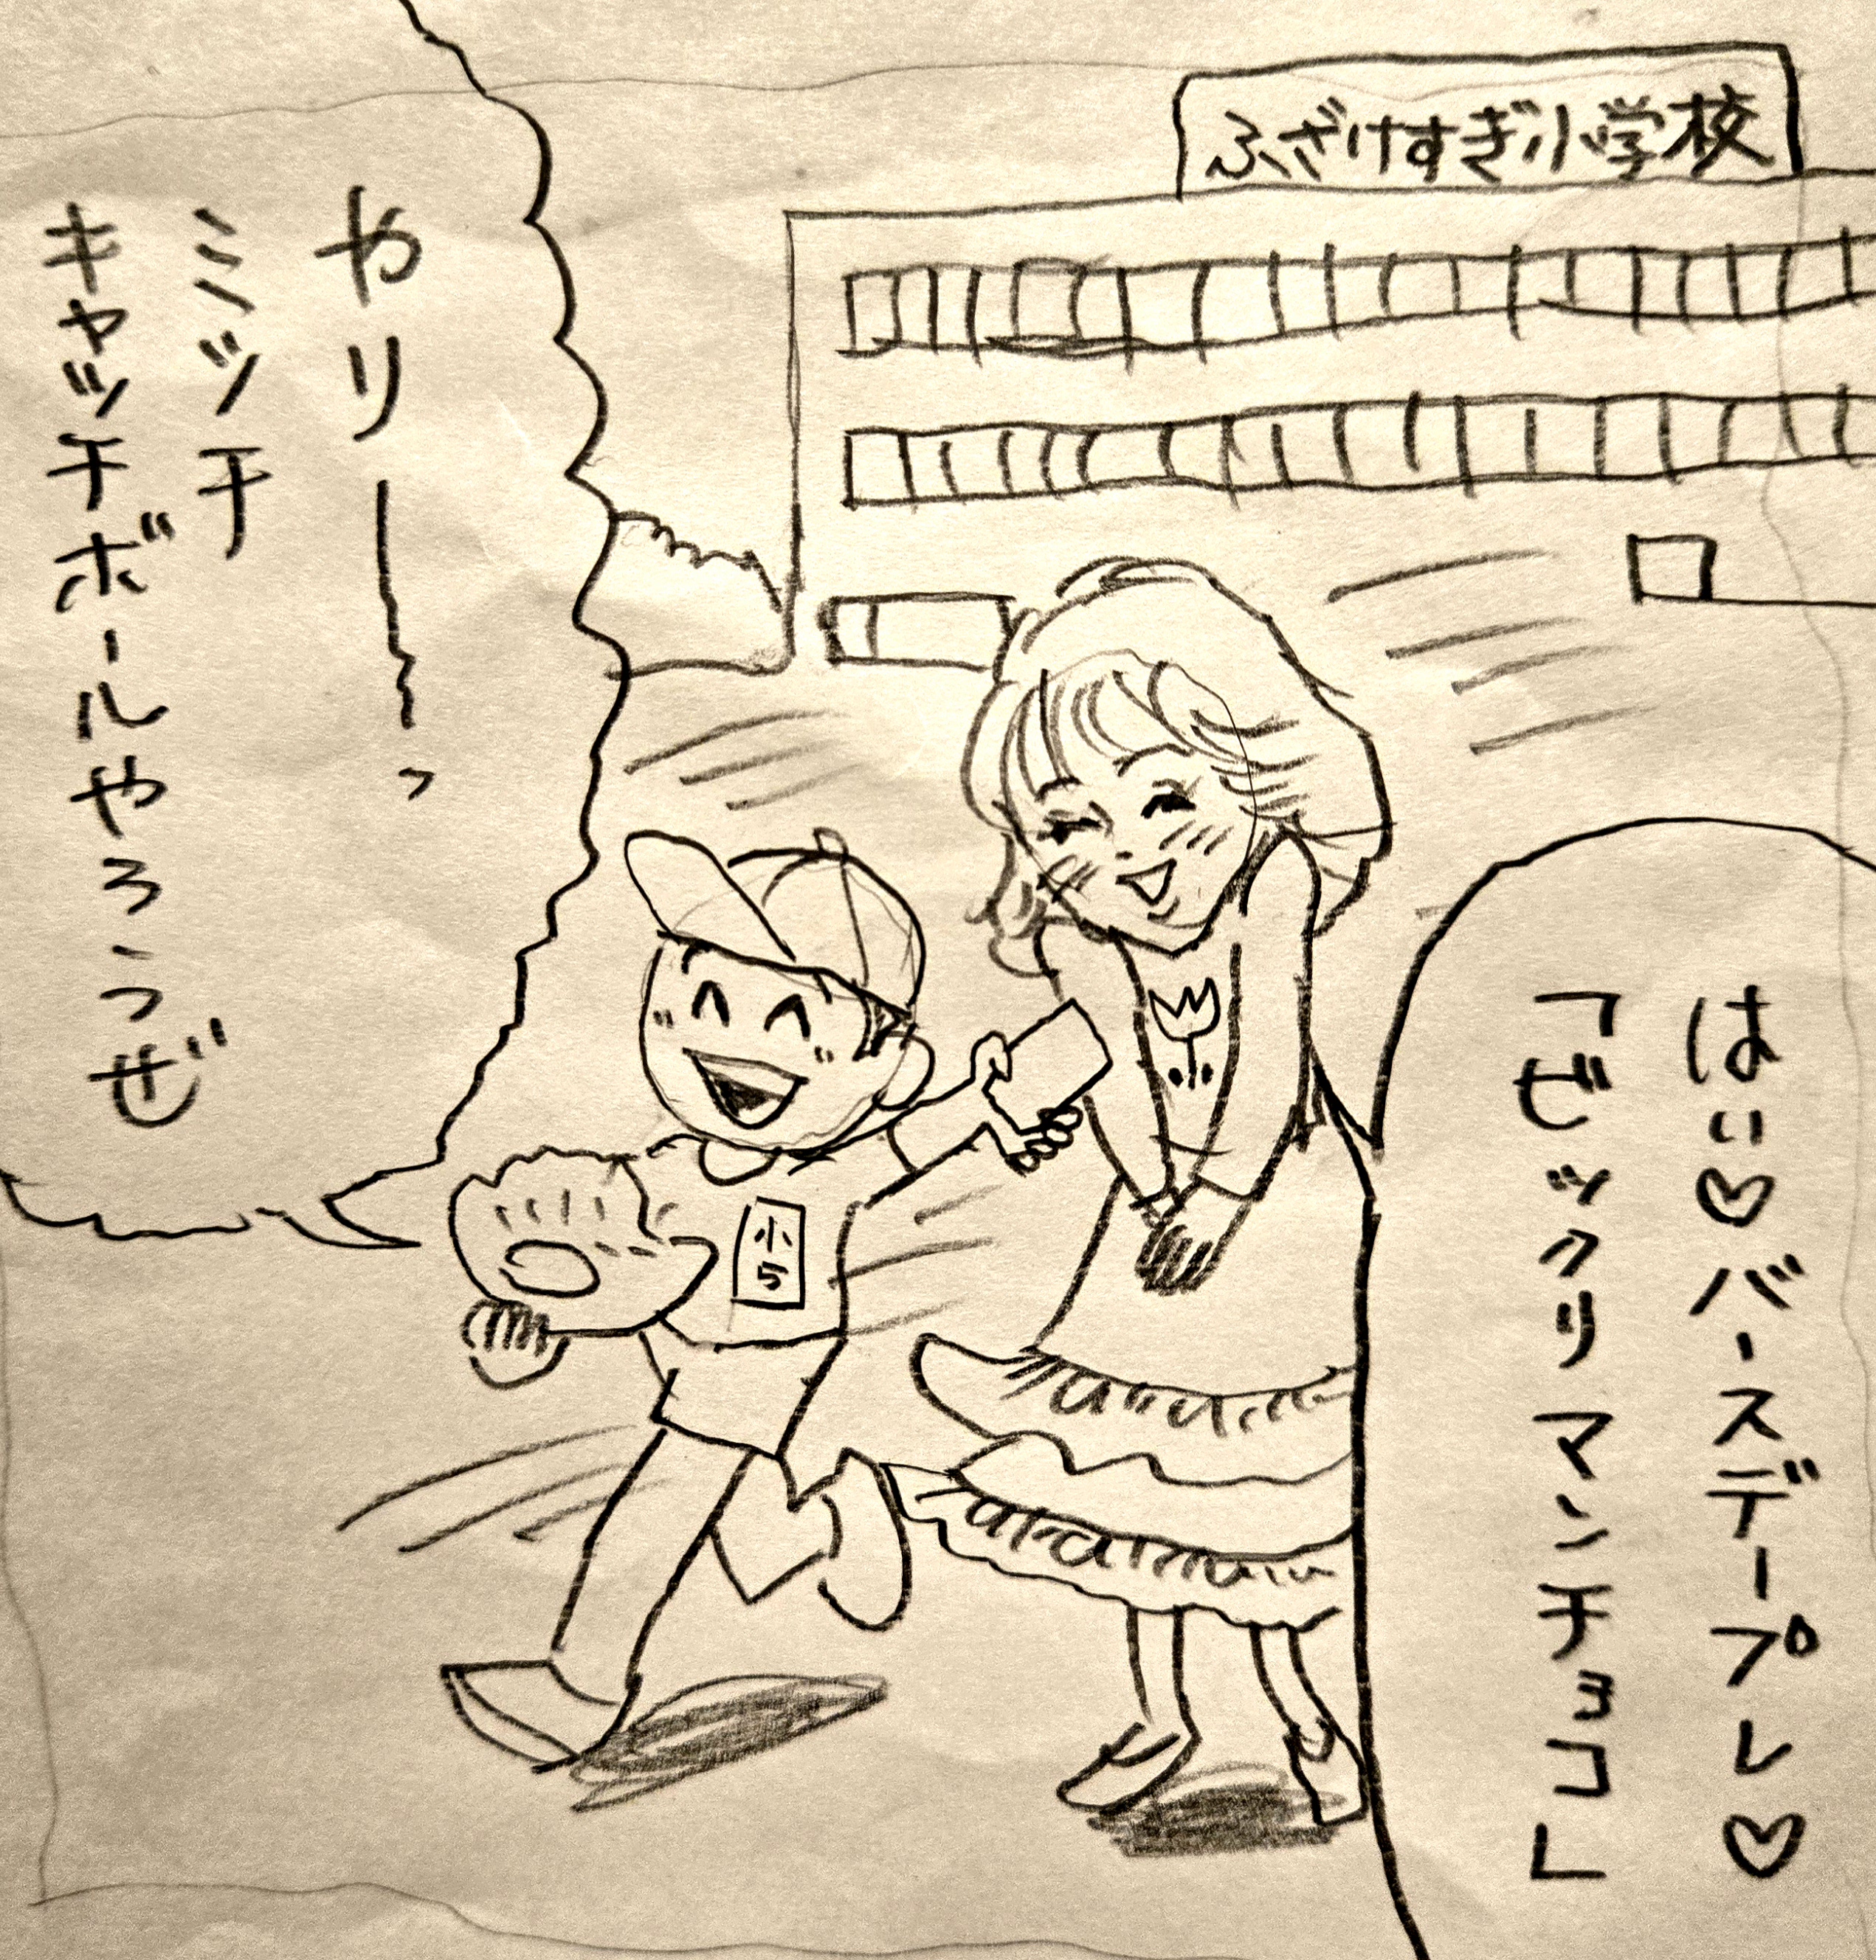 ふざけすぎ小学校
はい♡バースデープレ♡
「ゼックリマンチョコ」
やリ――っ
ミッチ
キャッチボールやろうぜ
小5